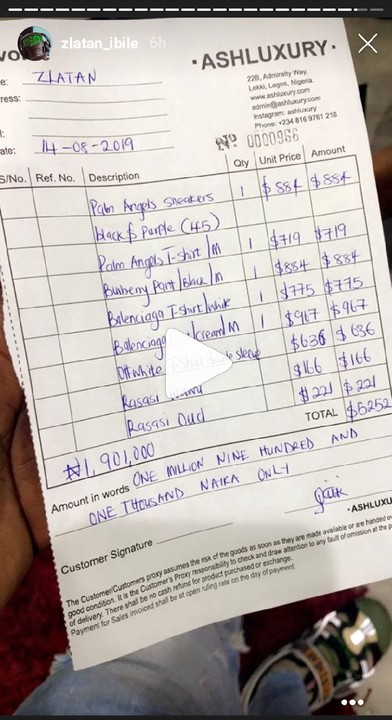 zlatan_ibile 6h
· ASHLUXURY ·
22B, Admiralty Way,
Lekki, Lagos, Nigeria.
www.ashluxury.com
admin@ashluxury.com
Instagram: ashluxury
Phone: +234 816 9761 216
ZLATAN
ress:
ate: 14-08-2019
Nº 0000966
S/No. Ref. No. Description Qty Unit Price Amount
Palm Angels Sneakers 1 $884 $884
black & purple (45)
Palm Angels T-shirt/M 1 $719 $719
Burberry Pant/Black/M 1 $884 $884
Balenciaga T-shirt/white 1 $775 $775
Balenciaga /cream/M 1 $967 $967
Off White T-Shirt sleeve $636 $636
Rasasi $166 $166
Rasasi Oud $221 $221
TOTAL $5252
₦1,901,000
Amount in words ONE MILLION NINE HUNDRED AND
ONE THOUSAND NAIRA ONLY
Customer Signature
· ASHLUXU
The Customer/Customers proxy assumes the risk of the goods as soon as they are made available or are handed ov
good condition. It is the Customer's Proxy responsibility to check and draw attention to any fault of omission at the p
of delivery. There shall be no cash refund for product purchased or exchange.
Payment for Sales invoiced shall be at open ruling rate on the day of payment.